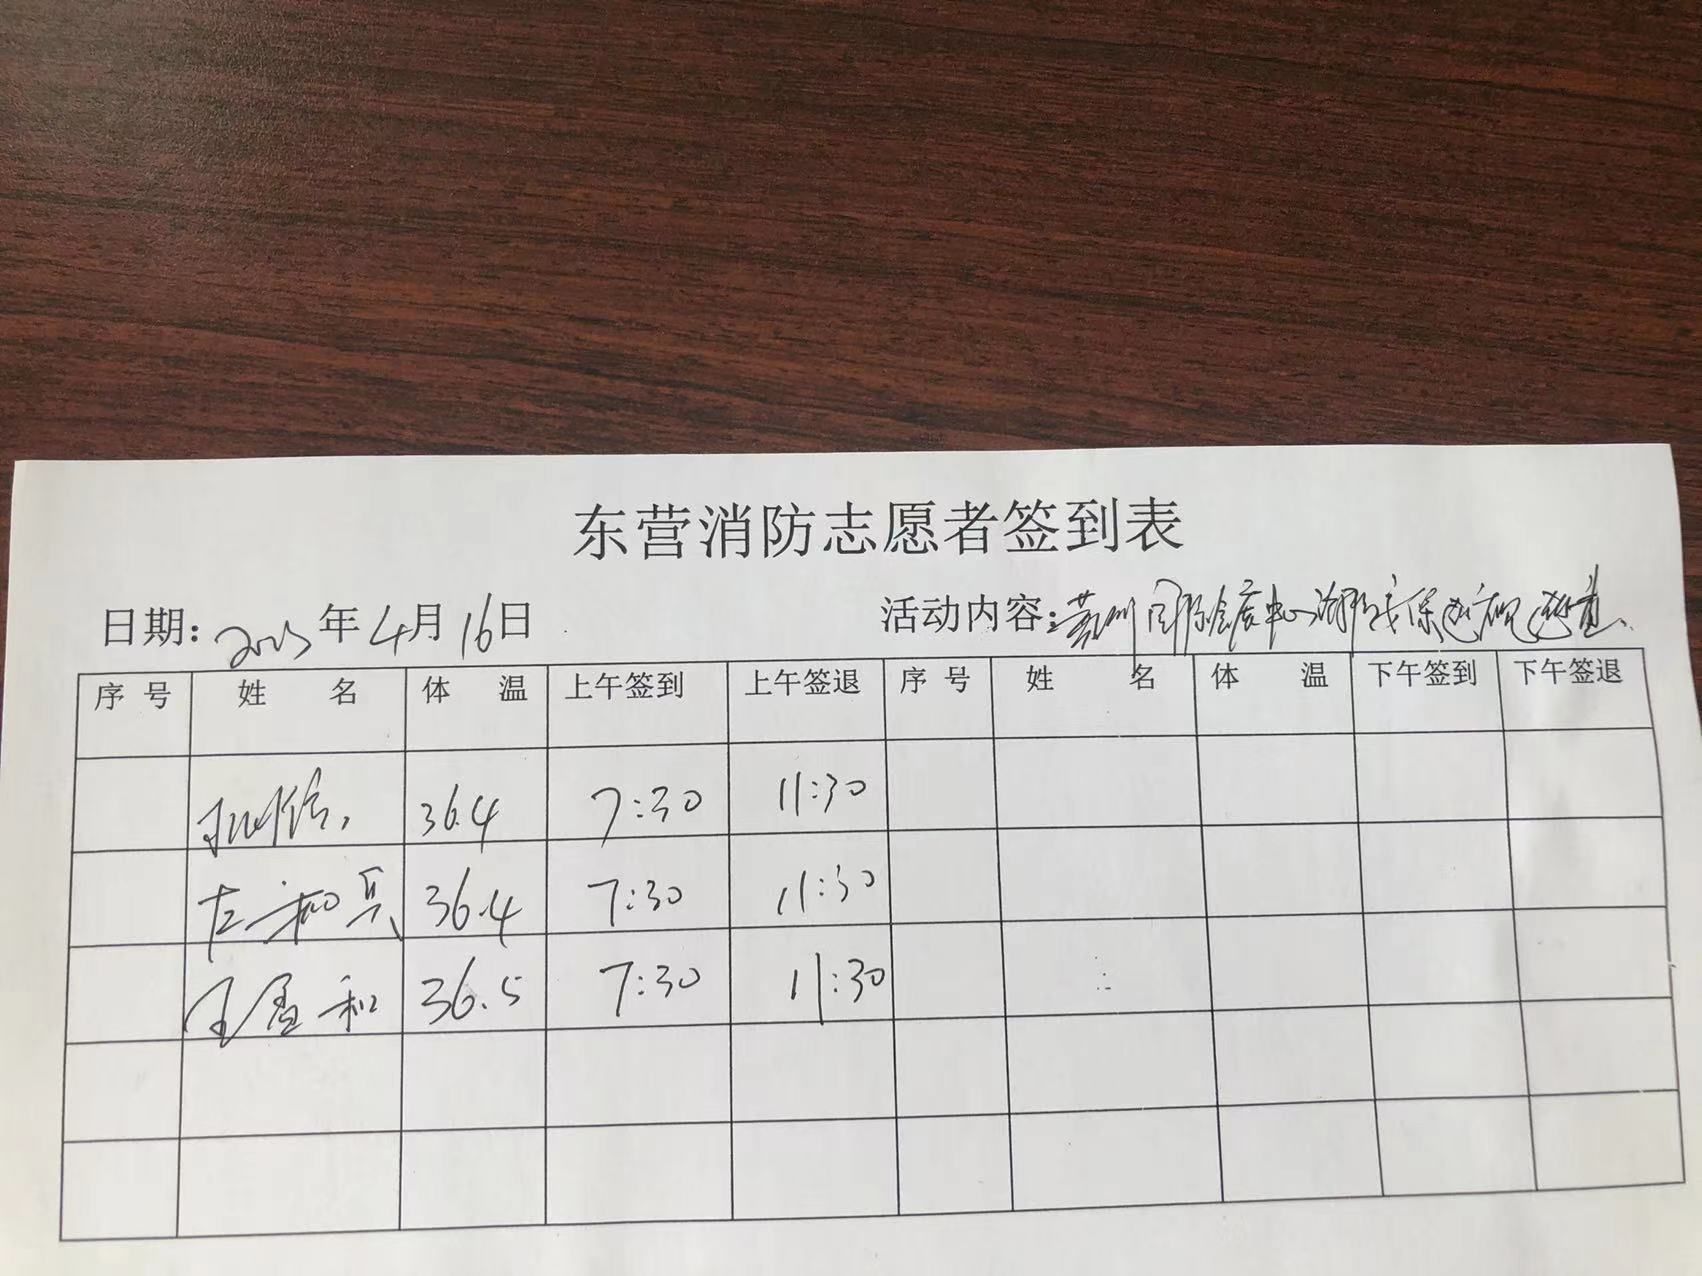 东营消防志愿者签到表
日期: 2023 年 4 月 16 日 活动内容: 国际会展中心
序 号 姓 名 体 温 上午签到 上午签退 序 号 姓 名 体 温 下午签到 下午签退
36.4 7:30 11:30
左 36.4 7:30 11:30
王 和 36.5 7:30 11:30